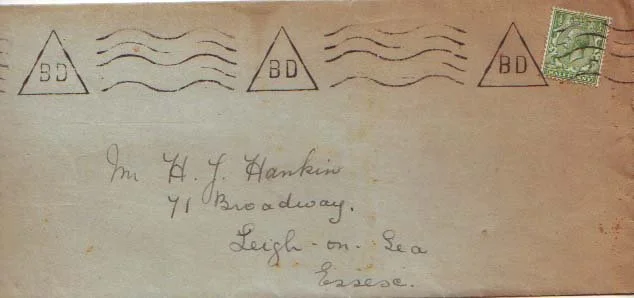 BD BD BD
Mr H. J. Hankin
71 Broadway.
Leigh-on-Sea
Essex.